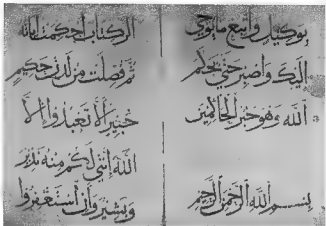 بوكيل واتبع ما يوحى
اليك واصبر حتى يحكم
الله وهو خير الحاكمين
بسم الله الرحمن الرحيم
الر كتاب احكمت اياته
ثم فصلت من لدن حكيم
خبير الا تعبدوا الا
الله انني لكم منه نذير
وبشير وان استغفروا